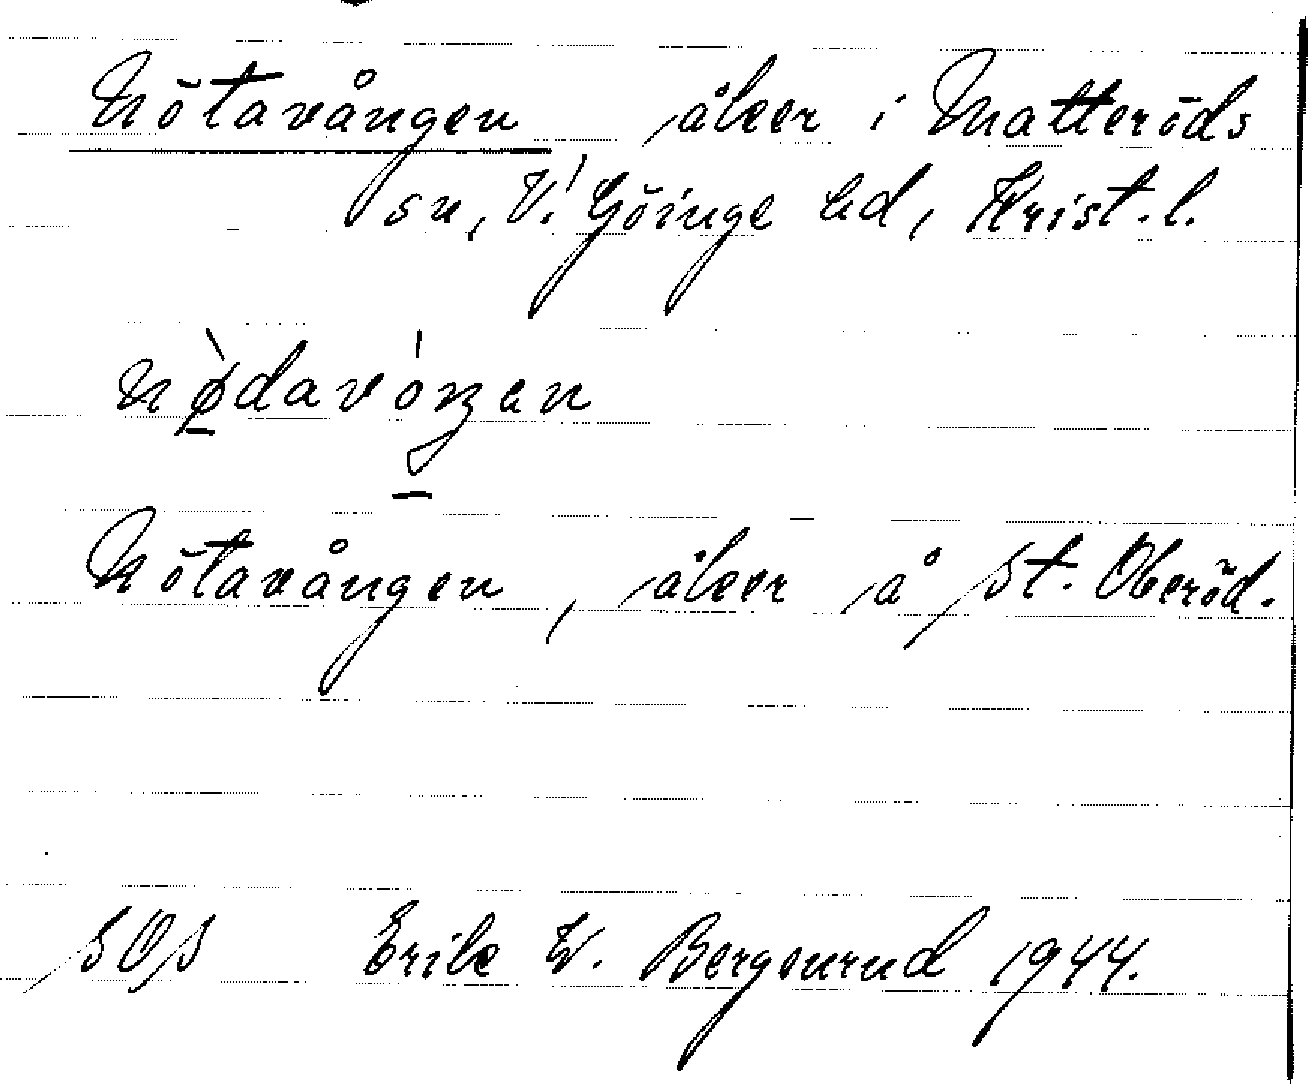 Nötavången åker i Matteröds
sn, V. Göinge hd, Krist. l.
nø̀davóŋen
Nötavången, åker å St. Oberöd.
SOS Erik W. Bergsunrud 1944.